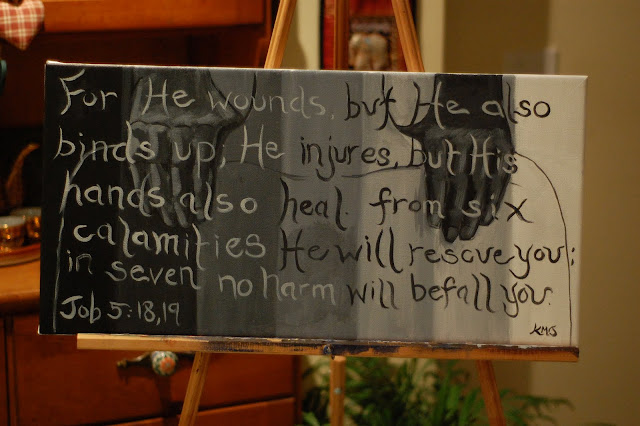 For He wounds, but He also
binds up; He injures, but His
hands also heal. from six
calamities He will rescue you;
in seven no harm will befall you.
Job 5:18,19
KMS